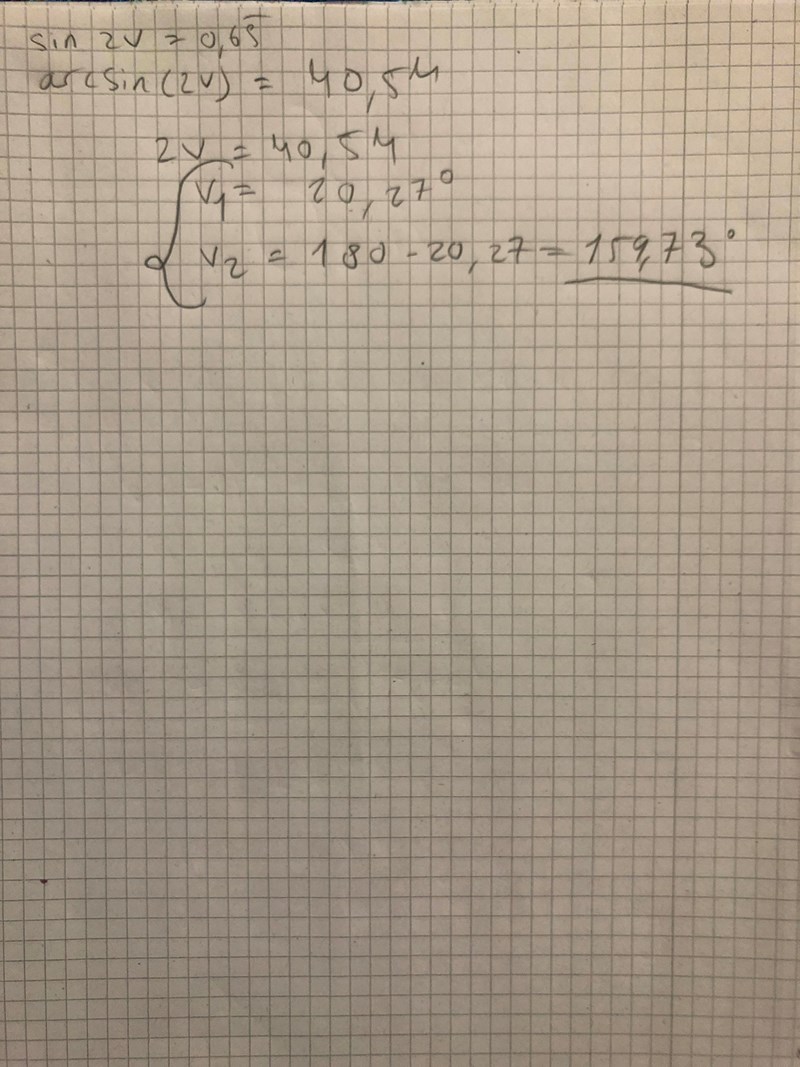 sin 2v = 0,65
arcsin(2v) = 40,54
2v = 40,54
v₁ = 20,27°
v₂ = 180 - 20,27 = 159,73°